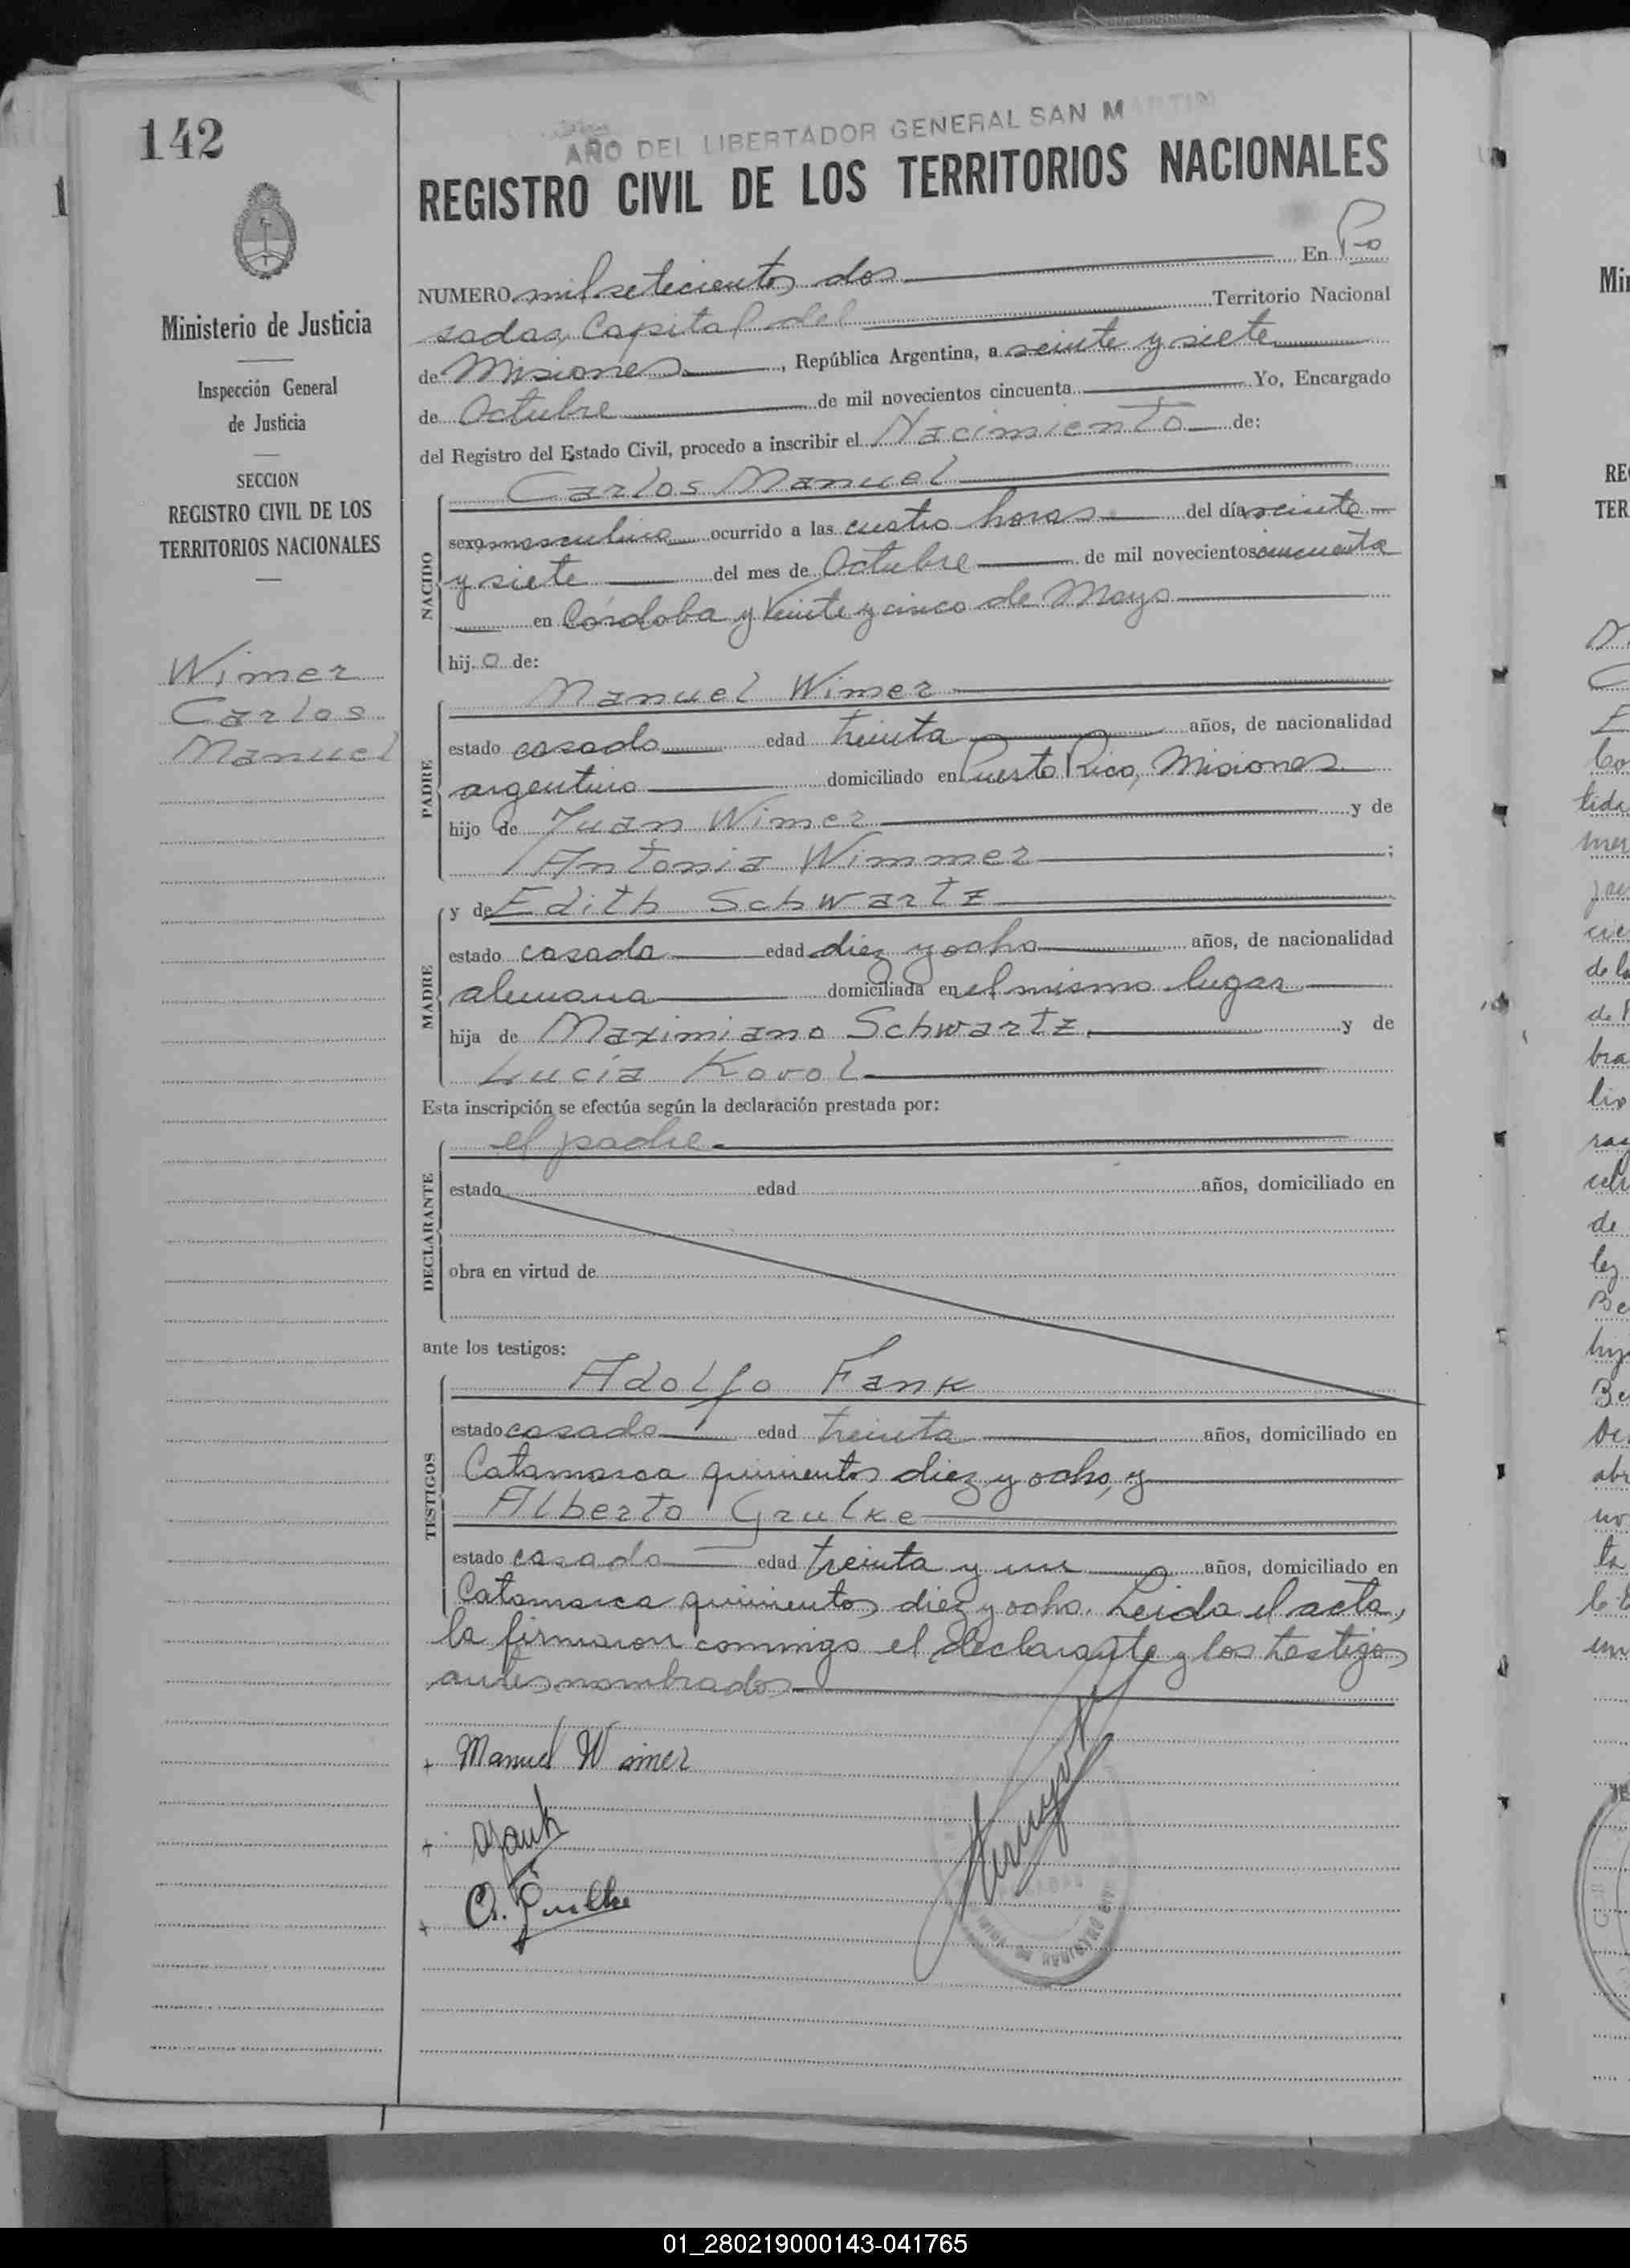 142
AÑO DEL LIBERTADOR GENERAL SAN MARTIN
REGISTRO CIVIL DE LOS TERRITORIOS NACIONALES
Ministerio de Justicia
Inspección General
de Justicia
SECCION
REGISTRO CIVIL DE LOS
TERRITORIOS NACIONALES
Wimer
Carlos
Manuel
NUMERO mil setecientos dos En Po
sadas, Capital del Territorio Nacional
de Misiones, República Argentina, a veinte y siete
de Octubre de mil novecientos cincuenta Yo, Encargado
del Registro del Estado Civil, procedo a inscribir el Nacimiento de:
NACIDO
Carlos Manuel
sexo masculino ocurrido a las cuatro horas del día veinte
y siete del mes de Octubre de mil novecientos cincuenta
en Córdoba y Veinte y cinco de Mayo
hijo de:
PADRE
Manuel Wimer
estado casado edad treinta años, de nacionalidad
argentino domiciliado en Puerto Rico, Misiones
hijo de Juan Wimer y de
Antonia Wimmer;
MADRE
y de Edith Schwartz
estado casada edad diez y ocho años, de nacionalidad
alemana domiciliada en el mismo lugar
hija de Maximiano Schwartz y de
Lucía Kovol
Esta inscripción se efectúa según la declaración prestada por:
DECLARANTE
el padre
estado edad años, domiciliado en
obra en virtud de
ante los testigos:
TESTIGOS
Adolfo Fank
estado casado edad treinta años, domiciliado en
Catamarca quinientos diez y ocho, y
Alberto Grulke
estado casado edad treinta y un años, domiciliado en
Catamarca quinientos diez y ocho. Leida el acta,
la firmaron conmigo el declarante y los testigos
antes nombrados
+ Manuel Wimer
+
+ A. Grulke
01_280219000143-041765